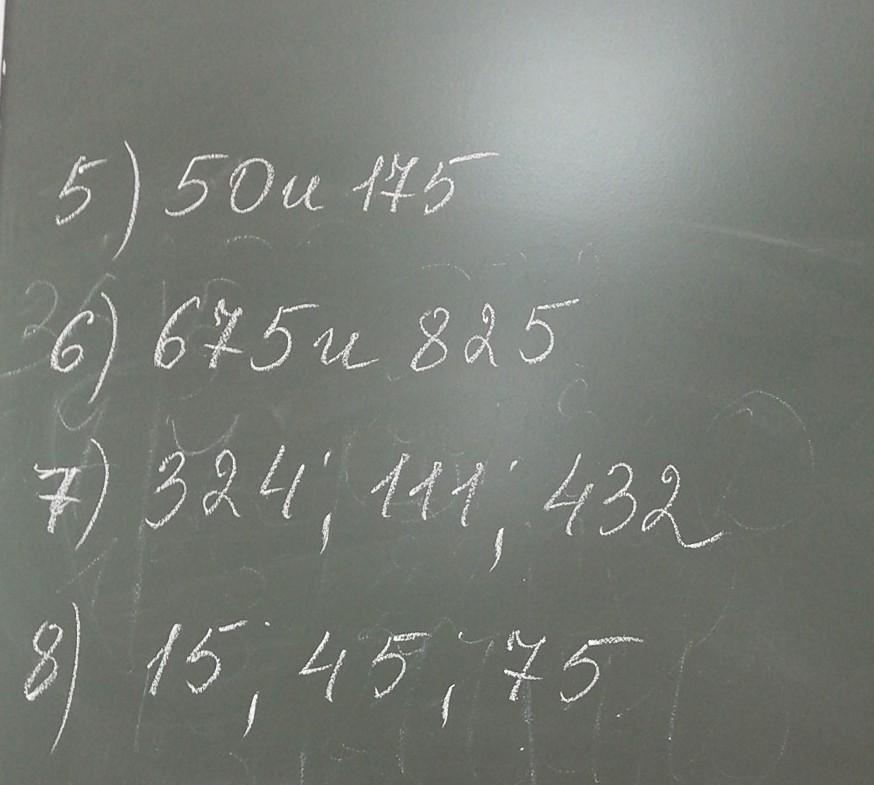 5) 50 и 175
6) 675 и 825
7) 324; 111; 432
8) 15; 45; 75